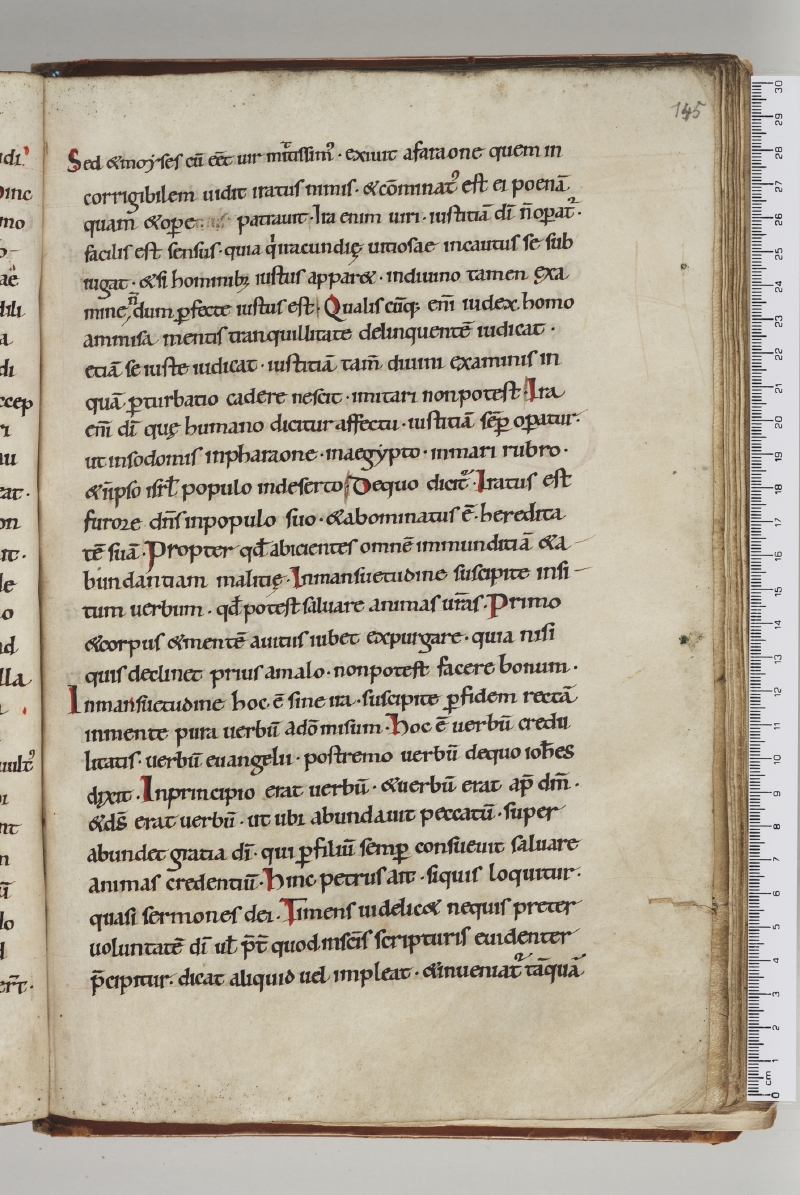 145
Sed &moyses cū eēt uir mitissim᾽ · exiuit afaraone quem in
corrigibilem uidit iratus nimis · &cōminat᾽ est ei poenā
quam &ope patrauit · Ira enim uiri · iustitiā dī n̄ opat᾽ ·
facilis est sensus · quia q iracundię uitiosae incautus se sub
iugat · &si hominibꝫ iustus appar& · indiuino tamen exa
mine, n̄dum ꝑfecte iustus est · Qualiscūq; em̄ iudex homo
ammisa mentis tranquillitate delinquentē iudicat ·
etiā se iuste iudicat · iustitiā tam̄ diuini examinis in
quā ꝑturbatio cadere nescit · imitari nonpotest · Ira
em̄ dī quę humano dicitur affectu · iustitiā sēp opatur ·
ut insodomis inpharaone · inaegypto · inmari rubro ·
&inipso isrl̄ populo indeserto · Dequo dicit᾽ · Iratus est
furore dn̄s inpopulo suo · &abominatus ē · heredita
tē suā · Propter qđ abicientes omnē immunditiā &a
bundantiam malitię · Inmansuetudine suscipite insi
tum uerbum · qđ potest saluare animas ur̄as · Primo
&corpus &mentē auitiis iubet expurgare · quia nisi
quis declinet prius amalo · nonpotest facere bonum ·
Inmansuetudine hoc ē sine ira · suscipite ꝑfidem rectā
inmente pura uerbū adō misum · hoc ē uerbū credu
litatis · uerbū euangelii · postremo uerbū dequo ioh̄es
dixit · Inprincipio erat uerbū · &uerbū erat ap̄ dm̄ ·
&ds̄ erat uerbū · ut ubi abundauit peccatū · super
abundet gratia dī · qui ꝑfiliū semꝑ consueuit saluare
animas credentiū · hinc petrus ait · siquis loquitur ·
quasi sermones dei · Timens uidelic& nequis preter
uoluntatē dī ul̄ p̄t quod inscis̄ scripturis euidenter
p̄cipitur · dicat aliquid uel impleat · &inueniat᾽ tāquā